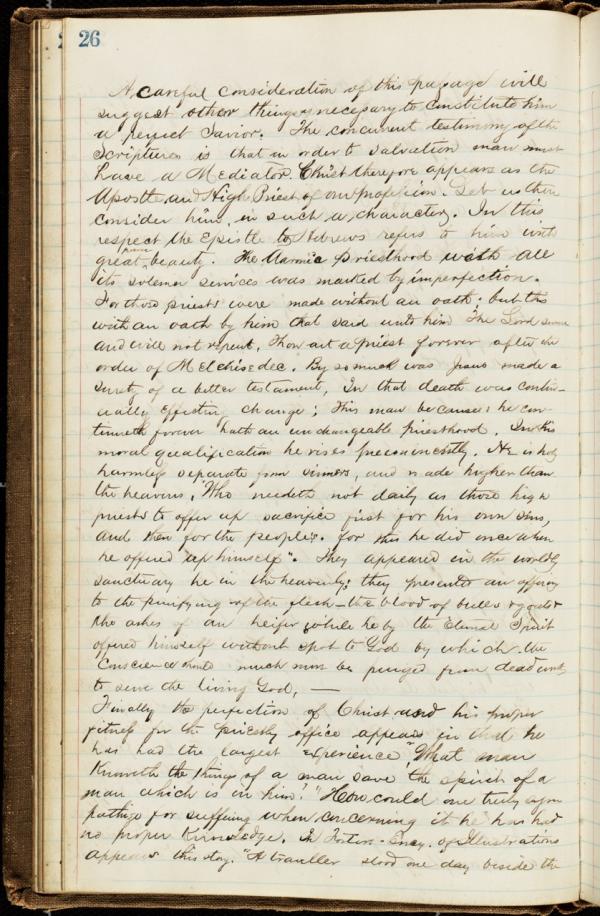 26
A careful consideration of this passage will
suggest other things necessary to constitute him
a perfect Savior. The concurrent testimony of the
Scriptures is that in order to salvation man must
have a Mediator. Christ therefore appears as the
Apostle and High Priest of our profession. Let us then
consider him, in such a character. In this
respect the Epistle to Hebrews refers to him with
great beauty. The Aaronic Priesthood with all
its solemn services was marked by imperfection.
For those priests were made without an oath; but this
with an oath by him that said unto him The Lord sware
and will not repent, Thou art a priest forever after the
order of Melchisedec. By so much was Jesus made a
surety of a better testament, In that death was contin-
ually effecting change; This man because he con-
tinueth forever hath an unchangeable priesthood. In his
moral qualification he rises preeminently. He is holy
harmless separate from sinners, and made higher than
the heavens, "Who needeth not daily as those high
priests to offer up sacrifice first for his own sins,
and then for the people's. for this he did once when
he offered up himself". They appeared in the worldly
sanctuary he in the heavenly; they presented an offering
to the purifying of the flesh - the blood of bulls & goats
the ashes of an heifer while he by the Eternal Spirit
offered himself without spot to God by which the
Conscience much more be purged from dead works
to serve the living God, —
Finally the perfection of Christ and his proper
fitness for the priestly office appears in that he
has had the largest experience, "What man
knoweth the things of a man save the spirit of a
man which is in him?" How could one truly sym
pathize for suffering when concerning it he has had
no proper knowledge. In Foster's Ency. of Illustrations
appears this story. "A traveller stood one day beside the